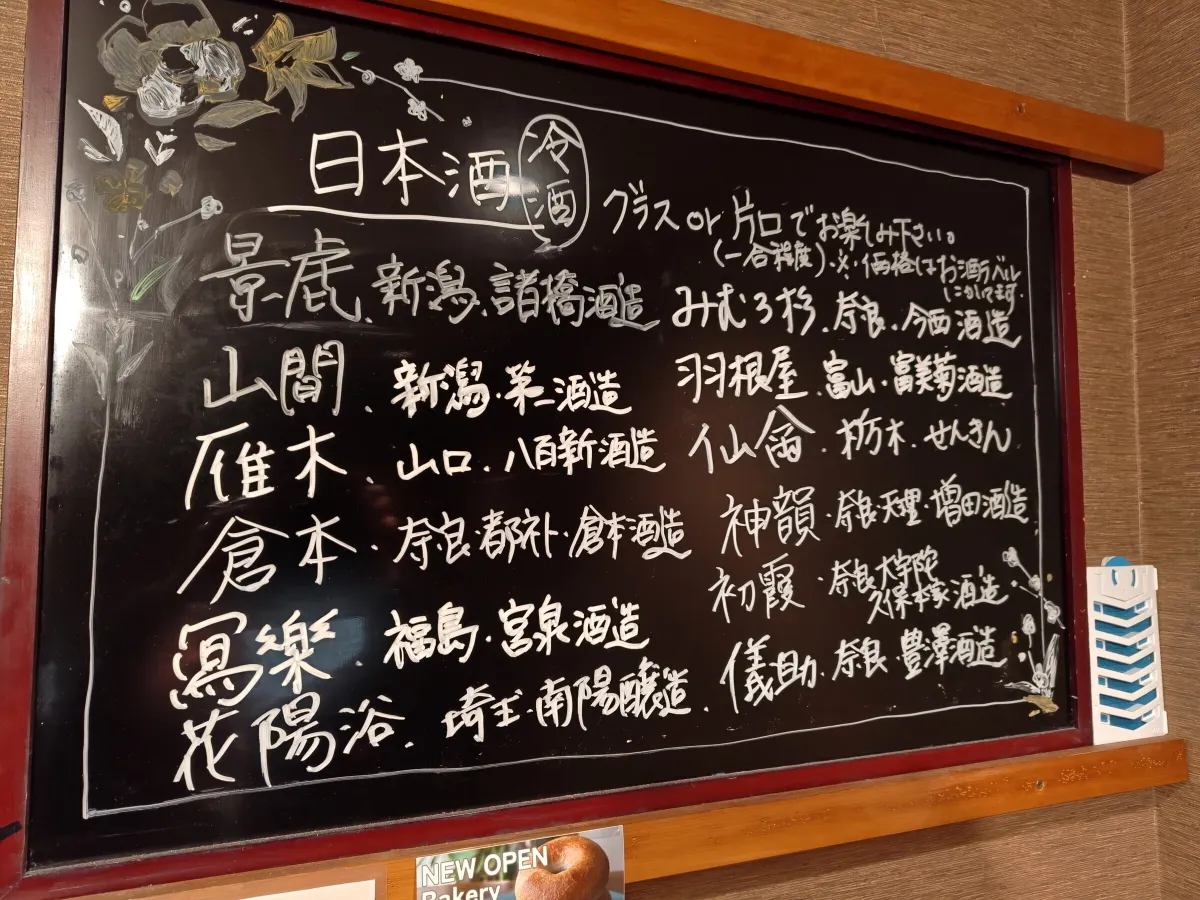 日本酒 冷酒
グラス or 片口でお楽しみ下さい。
(一合程度)・※・価格はお酒ラベル
にかいてます。
景虎、新潟、諸橋酒造
山間、新潟・第一酒造
雁木、山口・八百新酒造
倉本・奈良・都祁・倉本酒造
寫樂、福島・宮泉酒造
花陽浴、埼玉・南陽醸造、
みむろ杉、奈良・今西酒造
羽根屋、富山・富美菊酒造
仙禽・栃木・せんきん
神韻・奈良・天理・増田酒造
初霞・奈良大宇陀
久保本家酒造
儀助、奈良・豊澤酒造
NEW OPEN
Bakery